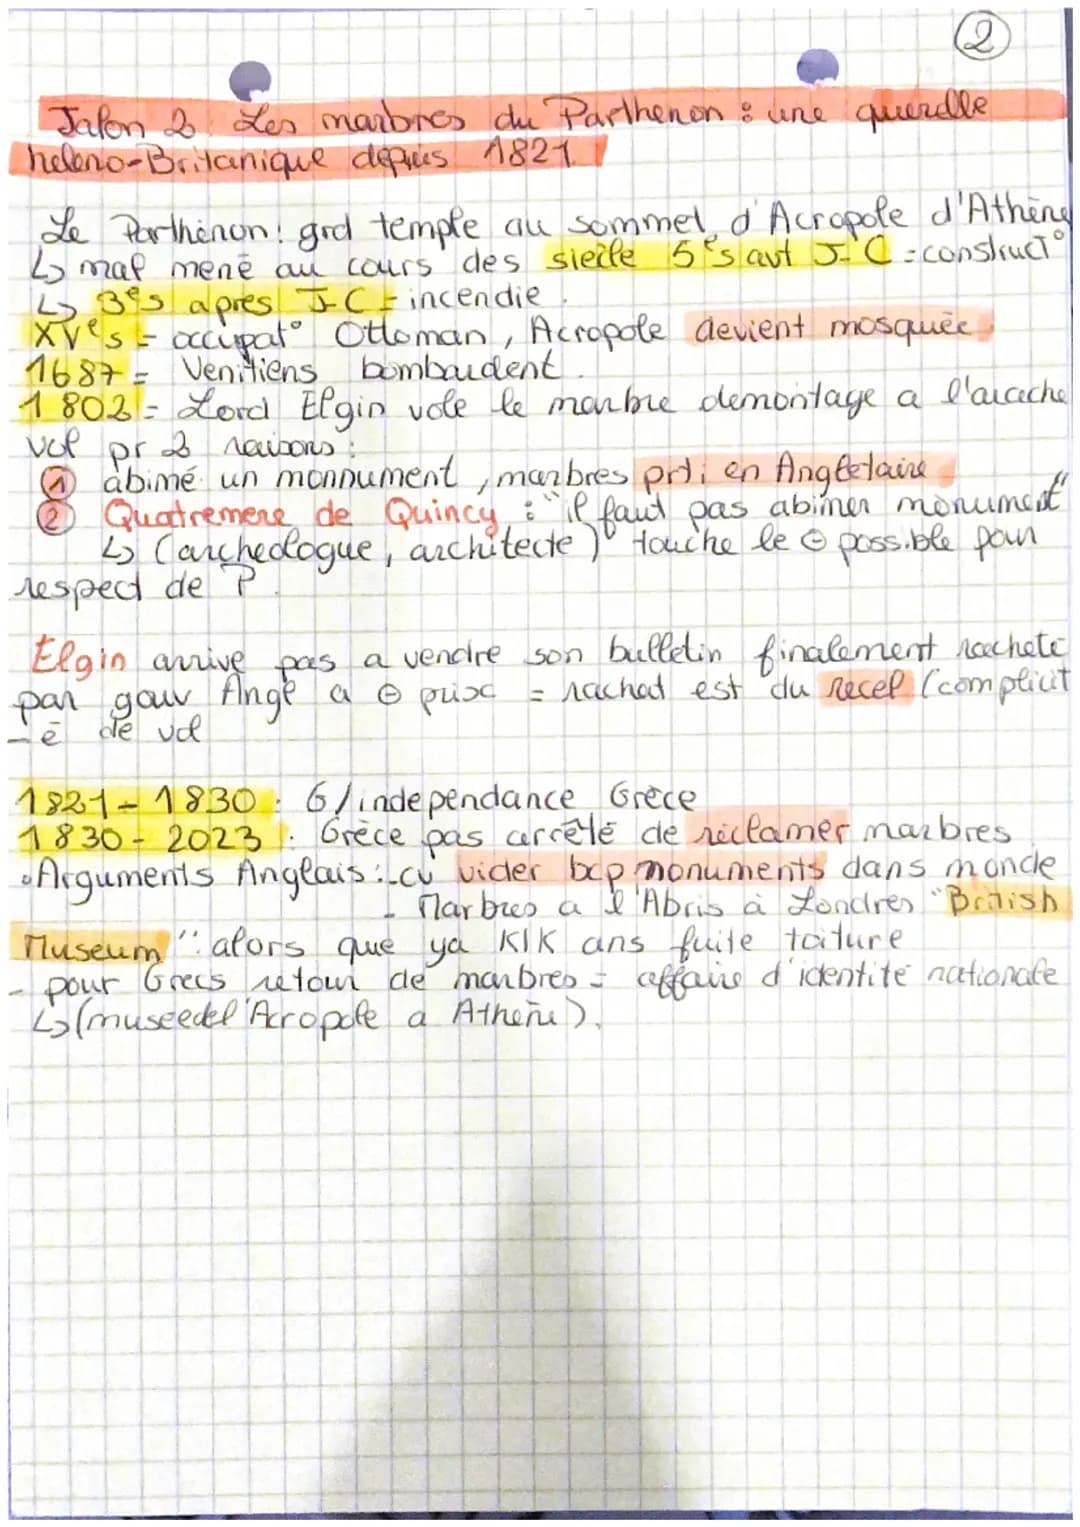 2
Jalon 2 Les marbres du Parthenon : une querelle
heleno-Britanique depuis 1821.
Le Parthénon : grd temple au sommet d'Acropole d'Athène
↳ mal mené au cours des siecle 5es avt J-C = construct°
↳ 3es apres J-C = incendie.
XVes = occupat° Ottoman, Acropole devient mosquée
1687 = Venitiens bombardent.
1802 = Lord Elgin vole le marbre demontage a l'arache
vol pr 2 raisons :
① abimé un monnument, marbres prti en Angletaire
② Quatremere de Quincy : "il faut pas abimer monument"
↳ (archeologue, architecte) touche le ⊖ possible par
respect de P.
Elgin arrive pas a vendre son bulletin finalement racheté
par gouv Angl a ⊖ prix = rachat est du recel (complicit
-é de vol
1821-1830 : G/independance Grèce
1830-2023 : Grèce pas arrêté de réclamer marbres
• Arguments Anglais : - cv vider bcp monuments dans monde
- Marbres a l'Abris à Londres "British
Museum" alors que ya KIK ans fuite toiture
- pour Grecs retour de marbres = affaire d'identité nationale
↳ (museedel'Acropole a Athène).